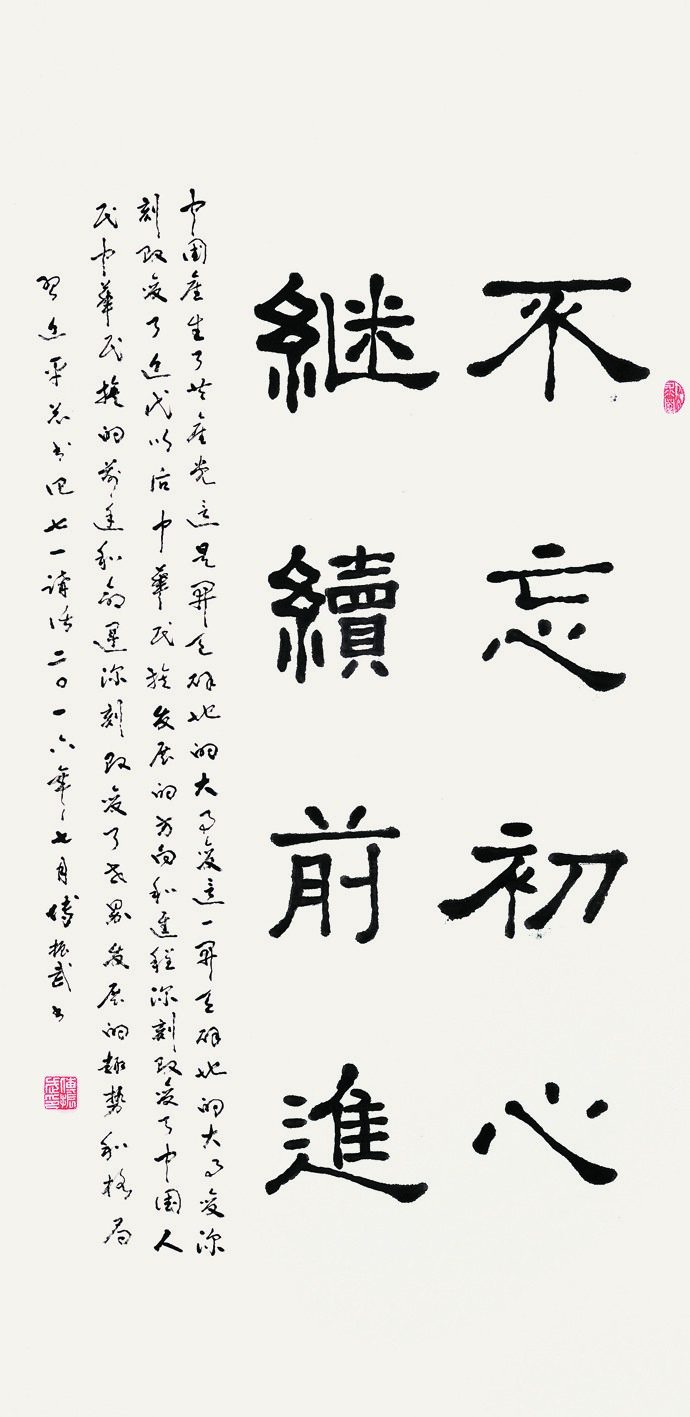 不忘初心
継續前進
中国產生了共產党這是開天辟地的大事变這一開天辟地的大事变深
刻改变了近代以后中華民族发展的方向和進程深刻改变了中国人
民中華民族的前途和命運深刻改变了世界发展的趨势和格局
習近平总书记七一講话二〇一六年七月傅振武书
傅振武印